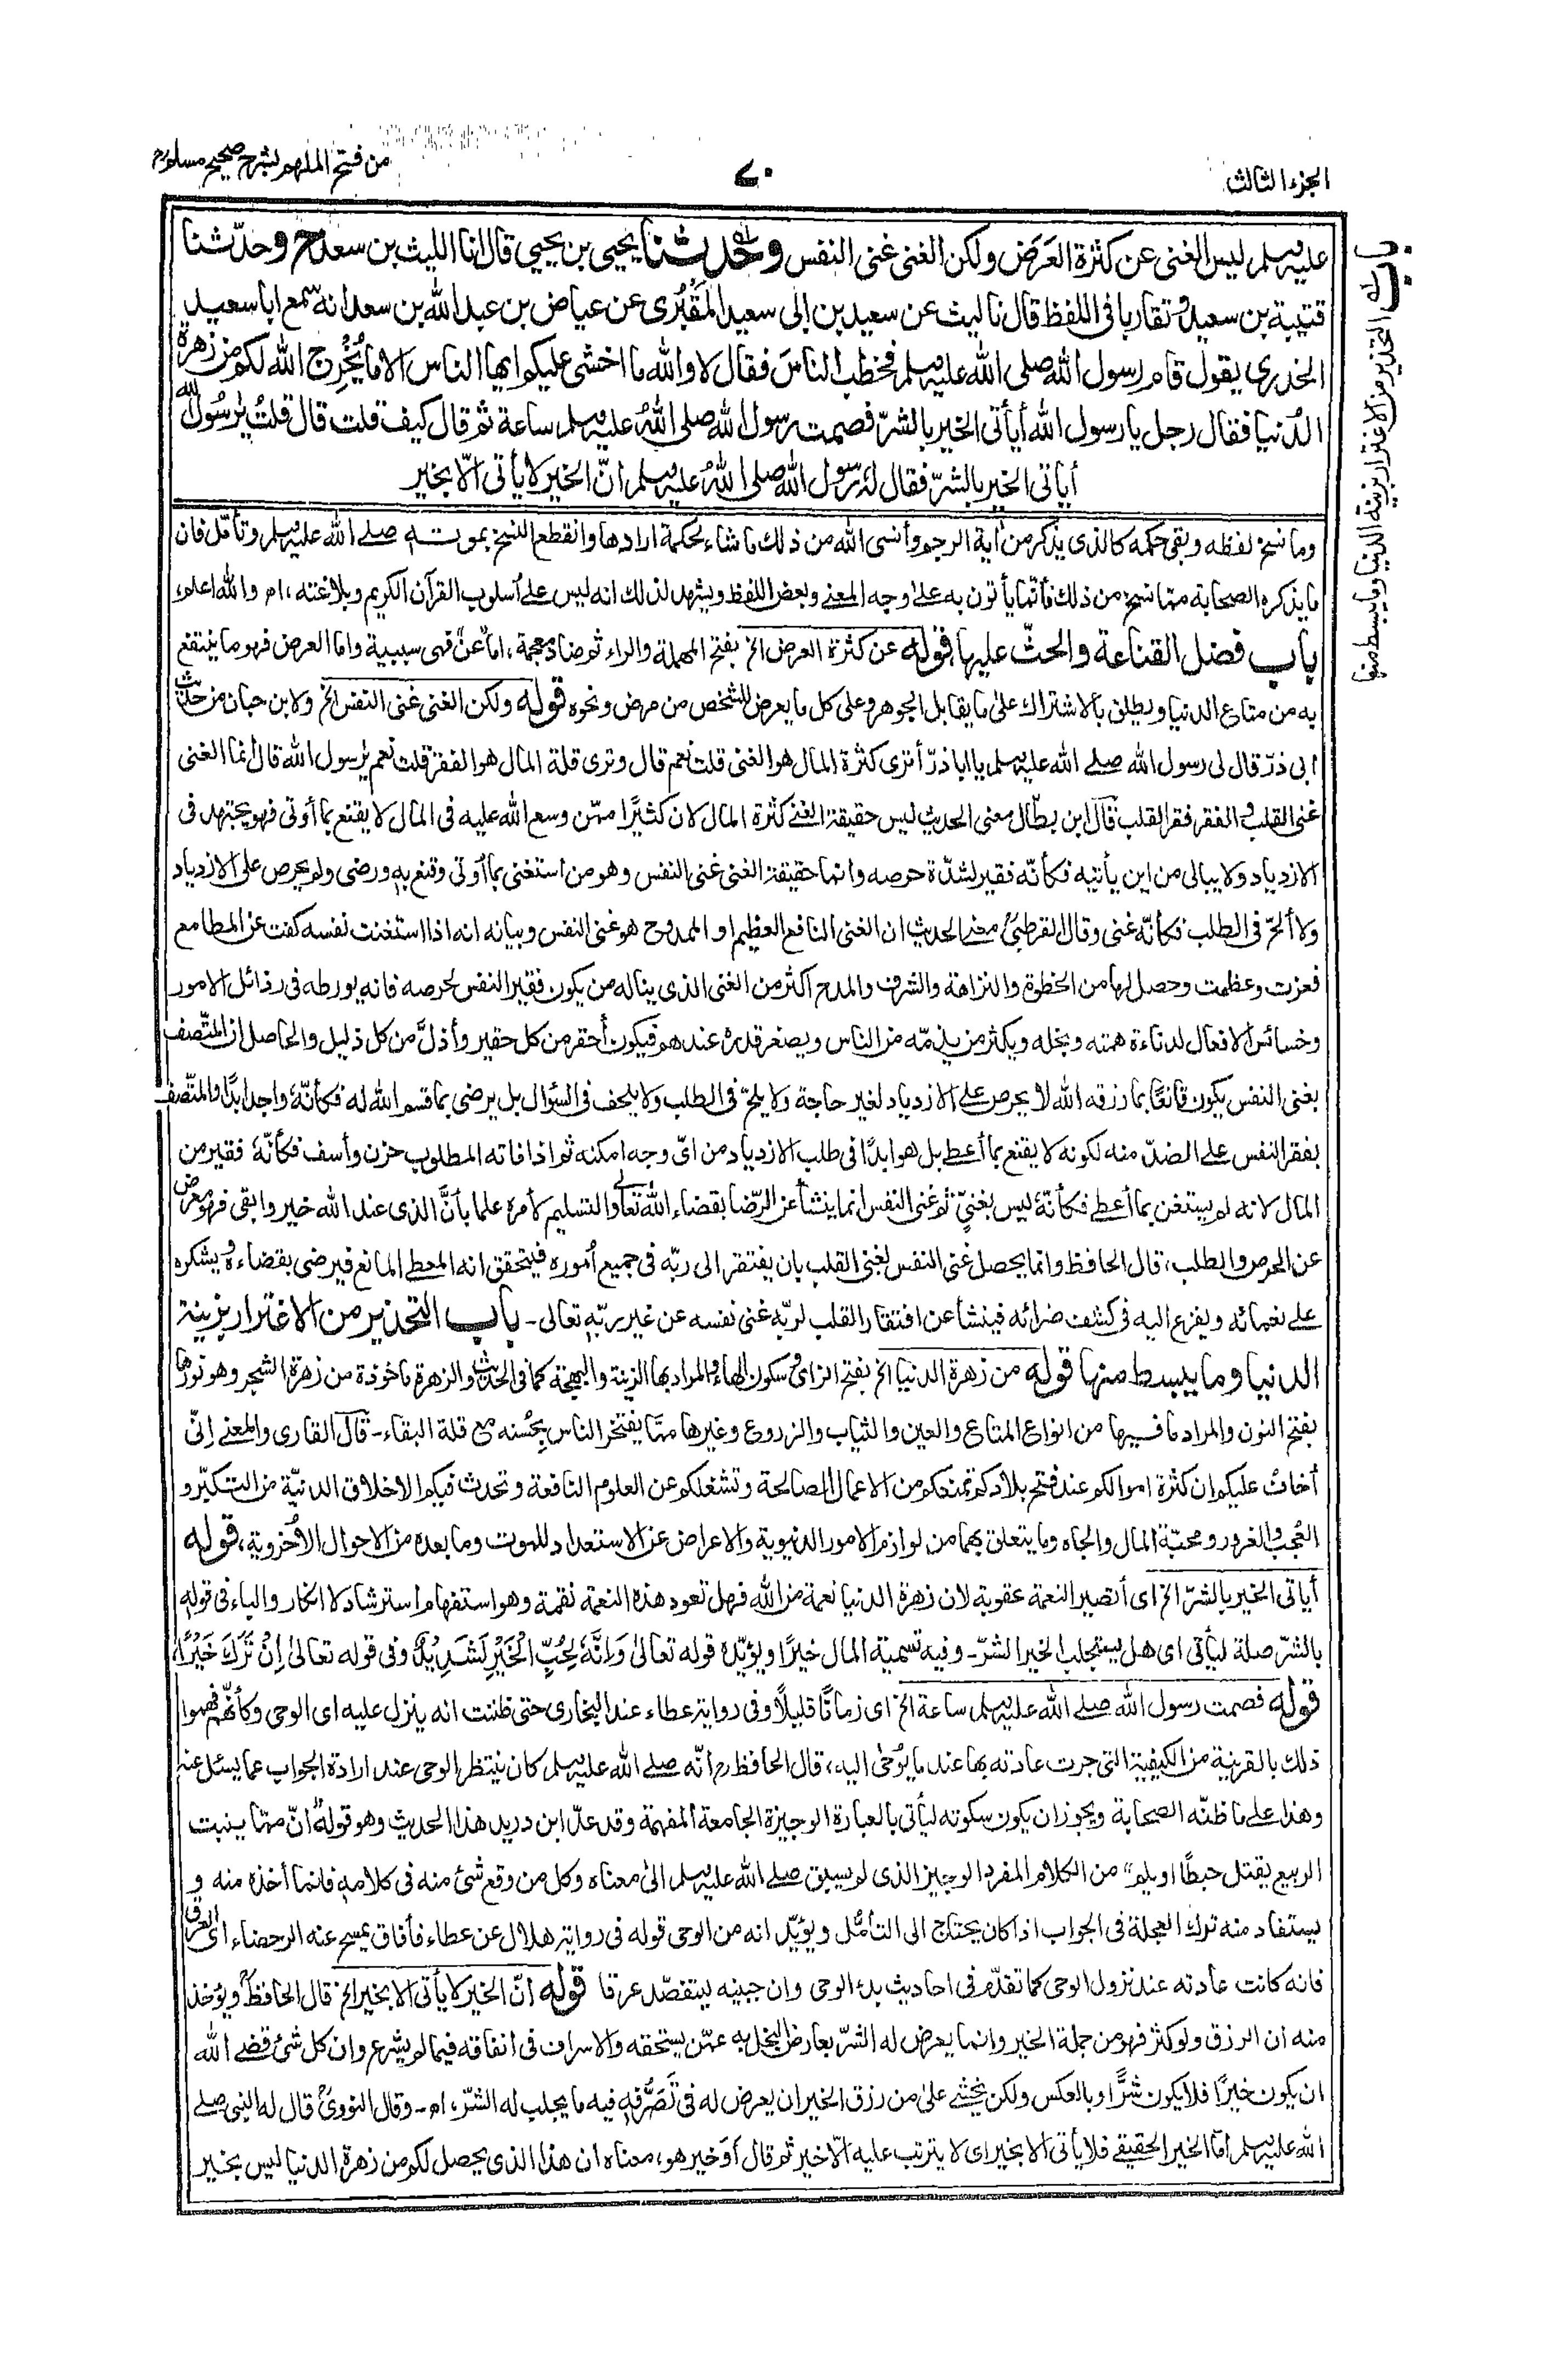 الجزء الثالث
٧٠
من فتح الملهم بشرح صحيح مسلم
باب التحذير من الاغترار بزينة الدنيا وما يبسط منها
عليه وسلم ليس الغنى عن كثرة العَرَض ولكن الغنى غنى النفس وحدثنا يحيى بن يحيى قال انا الليث بن سعد ح وحدّثنا
قتيبة بن سعيد وتقاربا فى اللفظ قال نا ليث عن سعيد بن ابى سعيد المَقْبُرى عن عياض بن عبد الله بن سعد انه سمع ابا سعيد
الخدرى يقول قام رسول الله صلى الله عليه وسلم فخطب الناسَ فقال لا والله ما اخشى عليكم ايها الناس الا ما يُخْرِج الله لكم من زهرة
الدُنيا فقال رجل يا رسول الله أيأتى الخير بالشرّ فصمت رسول الله صلى اللهُ عليه وسلم ساعة ثم قال كيف قلت قال قلتُ يٰرسُول الله
أياتى الخير بالشرّ فقال له رسول الله صلى اللهُ عليه وسلم انّ الخير لا يأتى الّا بخير
وما نسخ لفظه وبقى حكمه كالذى يذكر من أية الرجم وأنسى الله من ذلك ما شاء لحكمة ارادها وانقطع النسخ بموته صلے الله عليه وسلم وتأمّل فان
ما يذكره الصحابة ممّا نسخ من ذلك فأنّما يأتون به علے وجه المعنے وبعض اللفظ ويشهد لذلك انه ليس علے أسلوب القرآن الكريم وبلاغته، ام والله اعلم،
باب فضل القناعة والحثّ عليها، قوله عن كثرة العرض الخ بفتح المهملة والراء ثم ضاد معجمة، اما عن فهى سببية واما العرض فهو ما ينتفع
به من متاع الدنيا ويطلق بالاشتراك على ما يقابل الجوهر وعلى كل ما يعرض للشخص من مرض ونحوه قوله ولكن الغنى غنى النفس الخ ولابن حبان من حديث
ابى ذرّ قال لى رسول الله صلے الله عليه وسلم يا ابا ذرّ أترى كثرة المال هو الغنى قلت نعم قال وترى قلة المال هو الفقر قلت نعم يٰرسول الله قال انما الغنى
غنى القلب والفقر فقر القلب قال ابن بطّال معنى الحديث ليس حقيقة الغنے كثرة المال لان كثيرًا ممّن وسع الله عليه فى المال لا يقنع بما أوتى فهو يجتهد فى
الازدياد ولا يبالى من اين يأتيه فكأنّه فقير لشدّة حرصه وانما حقيقة الغنى غنى النفس وهو من استغنى بما أوتى وقنع به ورضى ولم يحرص على الازدياد
ولا ألحّ فى الطلب فكأنّه غنى وقال القرطبىؒ معنے الحديث ان الغنى النافع العظيم او الممدوح هو غنى النفس وبيانه انه اذا استغنت نفسه كفت عن المطامع
فعزت وعظمت وحصل لها من الحظوة والنزاهة والشرف والمدح اكثر من الغنى الذى يناله من يكون فقير النفس لحرصه فانه يورطه فى رذائل الامور
وخسائس الافعال لدناءة همته وبخله ويكثر من يذمّه من الناس ويصغر قدره عندهم فيكون أحقر من كل حقير وأذلَّ من كل ذليل والحاصل ان المتّصف
بغنى النفس يكون قانعًا بما رزقه الله لا يحرص علے الازدياد لغير حاجة ولا يلحّ فى الطلب ولا يلحف فى السؤال بل يرضى بما قسم الله له فكأنّه واجد ابدًا والمتّصف
بفقر النفس علے الضدّ منه لكونه لا يقنع بما أعطے بل هو ابدًا فى طلب الازدياد من اىّ وجه امكنه ثم اذا فاته المطلوب حزن وأسف فكأنّه فقير من
المال لانه لم يستغن بما أعطے فكأنّه ليس بغنىٍّ ثم غنى النفس انما ينشأ عن الرّضا بقضاء الله تعالٰى والتسليم لأمره علما بأنّ الذى عند الله خير وابقى فهو معرض
عن الحرص والطلب، قال الحافظ وانما يحصل غنى النفس لغنى القلب بان يفتقر الى ربّه فى جميع أموره فيتحقق انه المعطے المانع فيرضى بقضاءه ويشكره
علے نعمائه ويفزع اليه فى كشف ضرائه فينشأ عن افتقار القلب لربّه غنى نفسه عن غير ربّه تعالى ـ باب التحذير من الاغترار بزينة
الدنيا وما يبسط منها قوله من زهرة الدنيا الخ بفتح الزاى وسكون الهاء والمراد بها الزينة والبهجة كما فى الحديث والزهرة ماخوذة من زهرة الشجر وهو نورها
بفتح النون والمراد ما فيها من انواع المتاع والعين والثياب والزروع وغيرها ممّا يفتخر الناس بحُسنه مع قلة البقاء ـ قال القارى والمعنے إنّى
أخاف عليكم ان كثرة اموالكم عند فتح بلادكم تمنعكم من الاعمال الصالحة وتشغلكم عن العلوم النافعة وتحدث فيكم الاخلاق الدنيّة من التكبّر و
العُجب والغرور ومحبّة المال والجاه وما يتعلق بهما من لوازم الامور الدنيوية والاعراض عن الاستعداد للموت وما بعده من الاحوال الأخروية، قوله
أياتى الخير بالشرّ الخ اى أتصير النعمة عقوبة لان زهرة الدنيا نعمة من الله فهل تعود هذه النعمة نقمة وهو استفهام استرشاد لا انكار والباء فى قوله
بالشرّ صلة ليأتى اى هل يستجلب الخير الشرّ ـ وفيه تسمية المال خيرًا ويؤيّده قوله تعالىٰ وَاِنَّهٗ لِحُبِّ الْخَيْرِ لَشَدِيْدٌ وفى قوله تعالىٰ اِنْ تَرَكَ خَيْرًا،
قوله فصمت رسول الله صلے الله عليه وسلم ساعة الخ اى زمانًا قليلًا وفى رواية عطاء عند البخارى حتى ظننت انه ينزل عليه اى الوحى وكأنّهم فهموا
ذلك بالقرينة من الكيفية التى جرت عادته بها عند ما يُوْحٰى اليه، قال الحافظ رح أنّه صلے الله عليه وسلم كان ينتظر الوحى عند ارادة الجواب عما يسئل عنه
وهذا علے ما ظنّه الصحابة ويجوز ان يكون سكوته ليأتى بالعبارة الوجيزة الجامعة المفهمة وقد عدّ ابن دريد هذا الحديث وهو قوله انّ ممّا ينبت
الربيع يقتل حبطًا او يلم" من الكلام المفرد الوجيز الذى لم يسبق صلے الله عليه وسلم الىٰ معناه وكل من وقع شئ منه فى كلامه فانما أخذه منه و
يستفاد منه ترك العجلة فى الجواب اذا كان يحتاج الى التأمّل ويؤيّد انه من الوحى قوله فى رواية هلال عن عطاء فأفاق يمسح عنه الرحضاء اى العرق
فانه كانت عادته عند نزول الوحى كما تقدّم فى احاديث بدء الوحى وان جبينه ليتفصّد عرقا قوله انّ الخير لا يأتى الا بخير الخ قال الحافظؒ ويؤخذ
منه ان الرزق ولو كثر فهو من جملة الخير وانما يعرض له الشرّ بعارض البخل به عمّن يستحقه والاسراف فى انفاقه فيما لم يشرع وان كل شئ قضے الله
ان يكون خيرًا فلا يكون شرًّا وبالعكس ولكن يخشے علىٰ من رزق الخير ان يعرض له فى تَصَرُّفِه فيه ما يجلب له الشرّ، ام ـ وقال النووىؒ قال له النبى صلے
الله عليه وسلم امّا الخير الحقيقے فلا يأتى الا بخير اى لا يترتب عليه الّا خير ثم قال أوَخير هو، معناه ان هذا الذى يحصل لكم من زهرة الدنيا ليس بخير